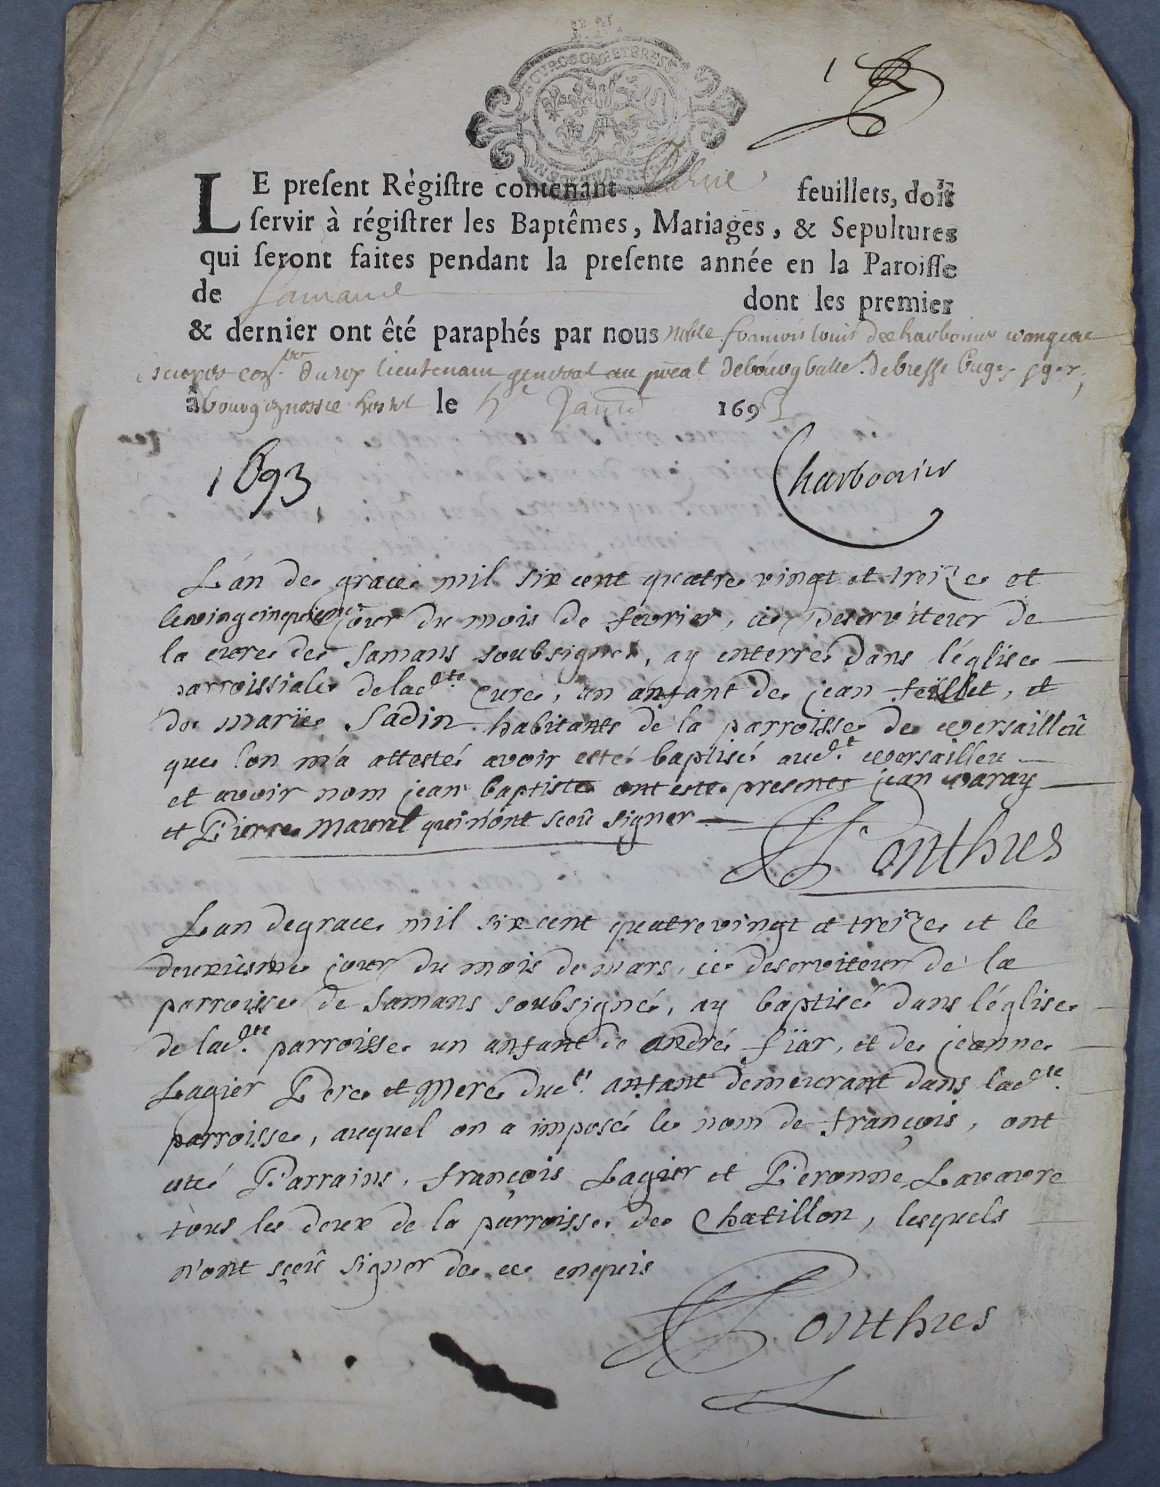 LE present Règistre contenant feuillets, doit
servir à régistrer les Baptêmes, Mariages, & Sepultures
qui seront faites pendant la presente année en la Paroisse
de Samans dont les premier
& dernier ont été paraphés par nous noble francois louis de charbonnier crangeac
escuyer conser du roy lieutenant general au preal de bourg balle de bresse bugey
à bourg le Janvier 1693
1693 Charbonnier
L'an de grace mil six cent quatre vingt et treize et
le vingcinquieme jour du mois de fevrier, ie Deserviteur de
la cure de Samans soubsigné, ay enterré dans l'église
parroissiale de lad.te Cure, un anfant de jean feillet, et
de marie Sadin habitants de la parroisse de versailleu
que l'on m'a attesté avoir esté baptisé aud.t versailleu
et avoir nom jean baptiste ont esté presents jean varay
et Pierre mauvet qui n'ont sceu signer
Ponthus
L'an de grace mil six cent quatre vingt et treize et le
deuxiesme jour du mois de mars, ie deserviteur de la
parroisse de Samans soubsigné, ay baptisé dans l'église
de lad.te parroisse un anfant de andré fiar, et de jeanne
Lagier Pere et Mere dud.t anfant demeurant dans lad.te
parroisse, auquel on a imposé le nom de françois, ont
esté Parrains, françois Lagier et Peronne Lavavre
tous les deux de la parroisse de Chatillon, lesquels
n'ont sçeu signer de ce enquis
Ponthus